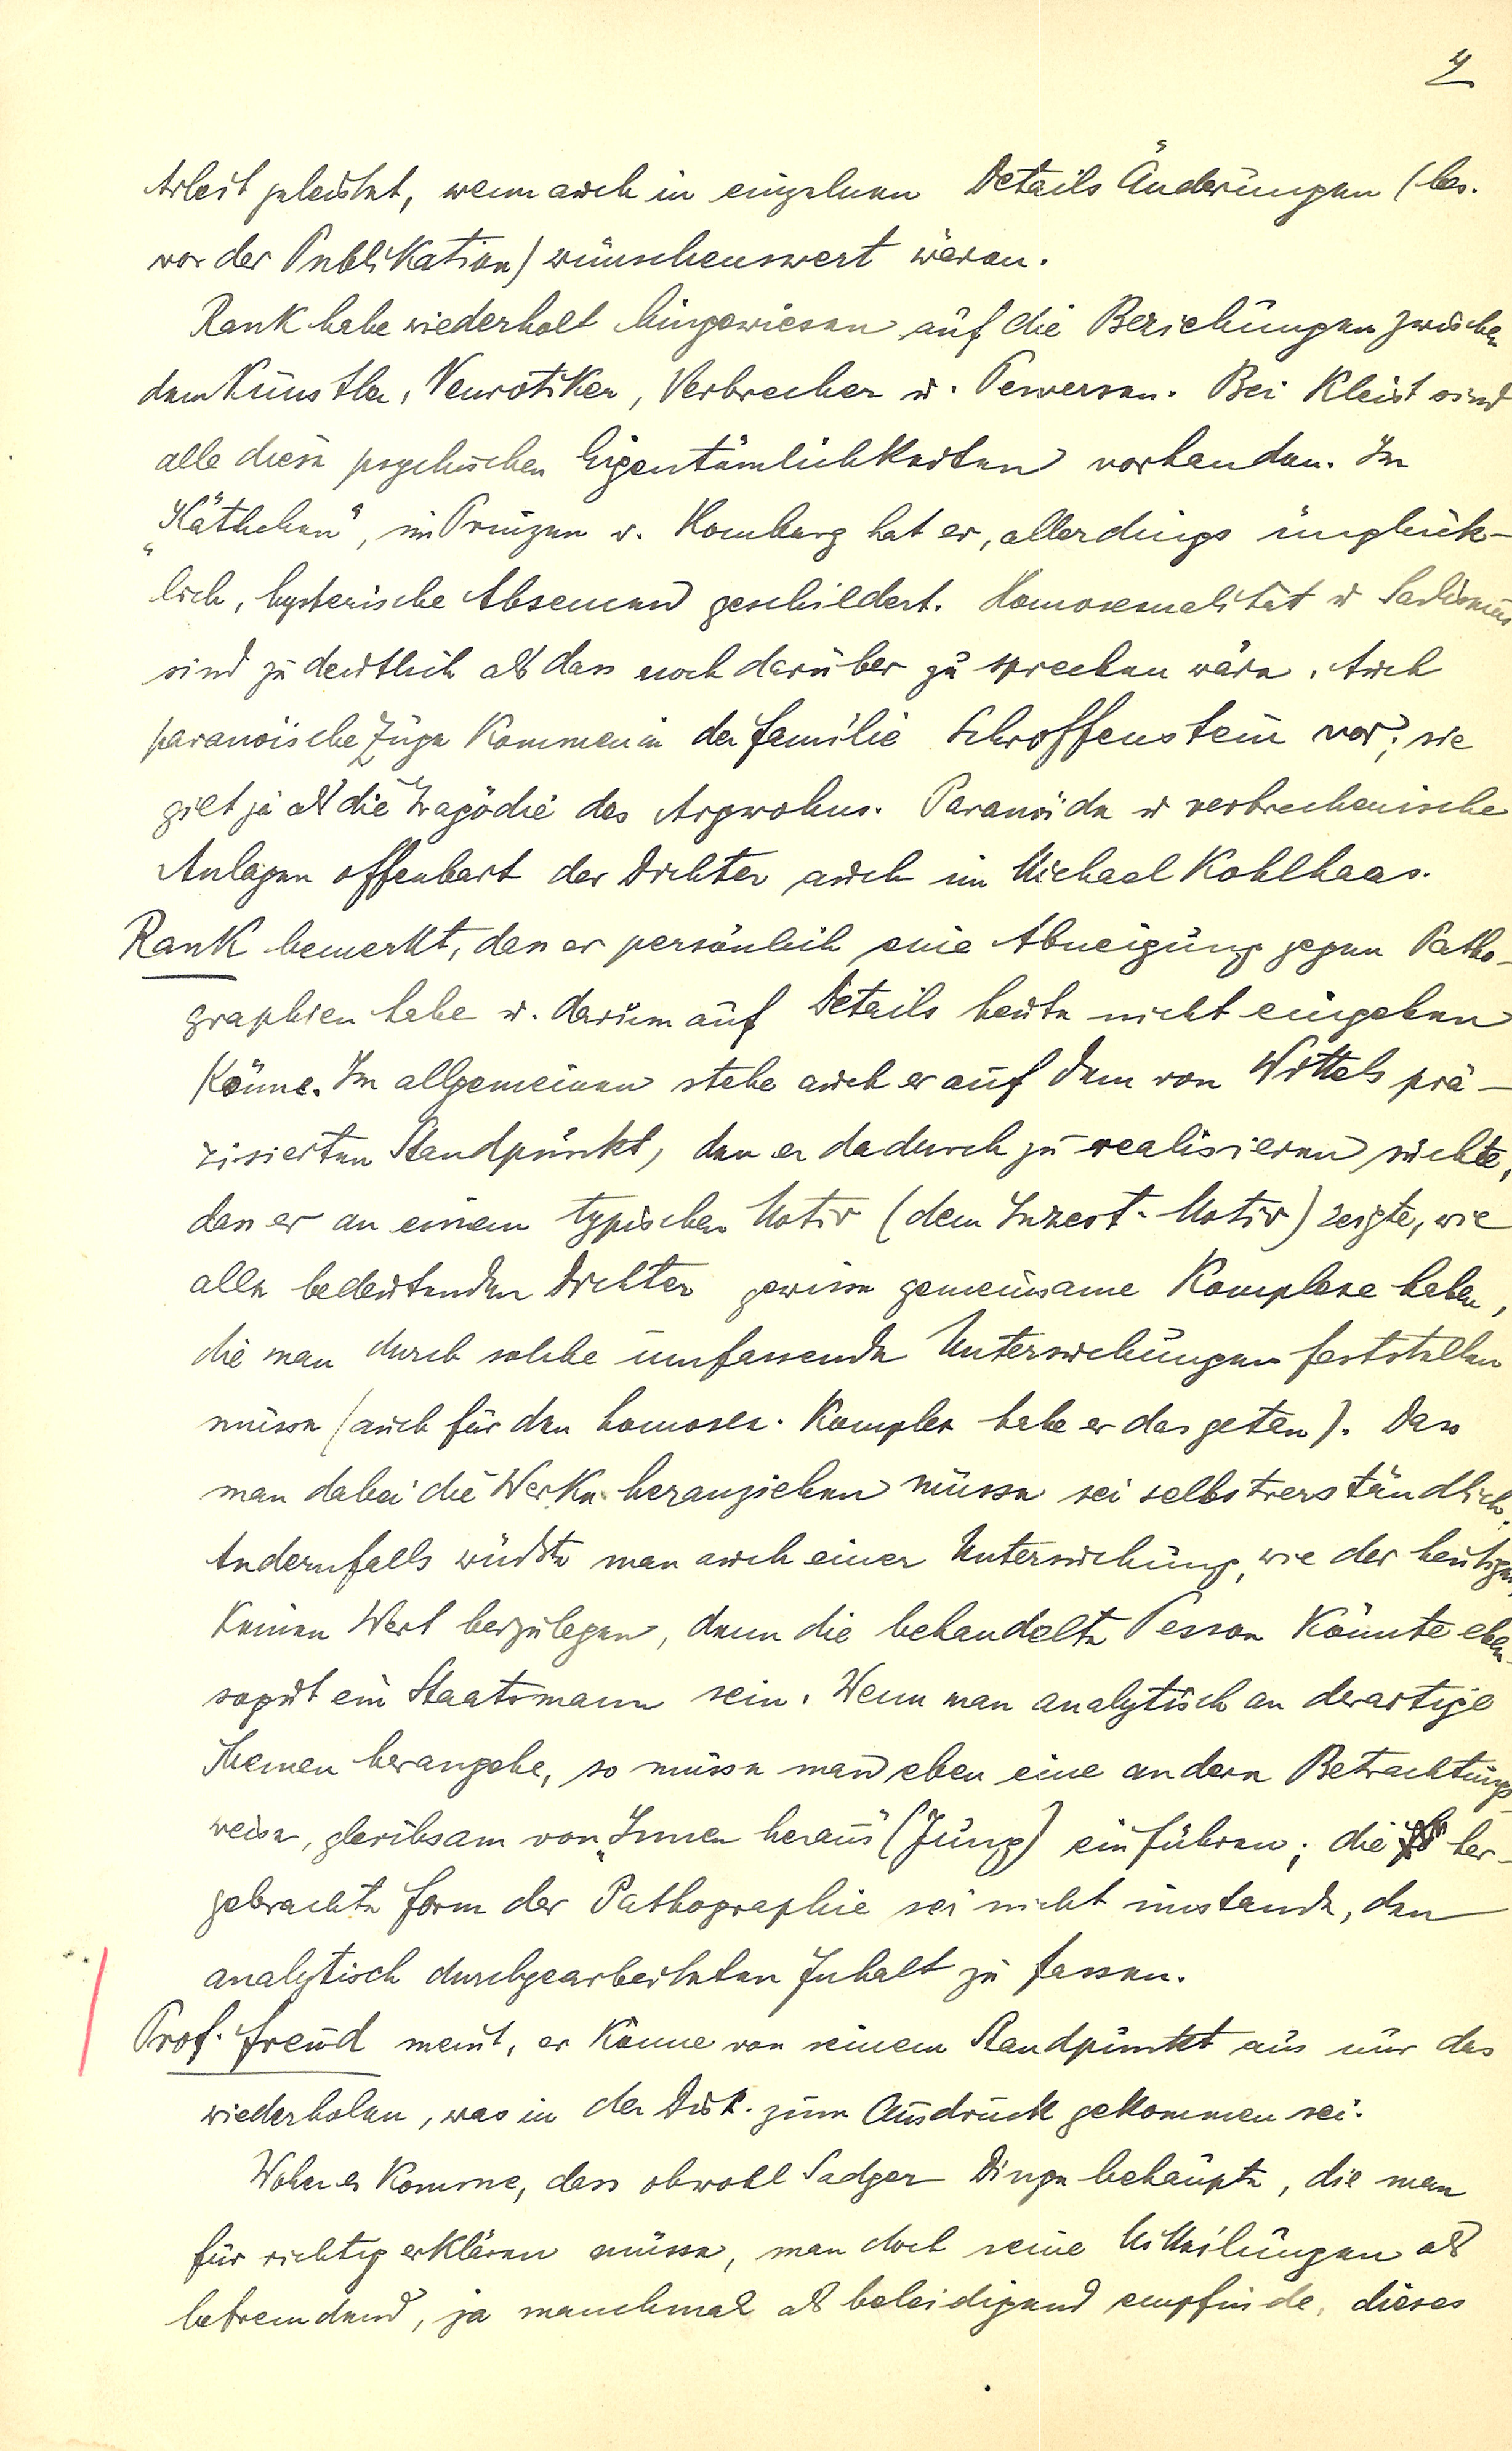 4
Arbeit geleistet, wenn auch in einzelnen Details Änderungen (bes.
vor der Publikation) wünschenswert wären.
Rank habe wiederholt hingewiesen auf die Beziehungen zwischen
dem Künstler, Neurotiker, Verbrecher u. Perversen. Bei Kleist sind
alle diese psychischen Eigentümlichkeiten vorhanden. Im
„Käthchen“, im Prinzen v. Homburg hat er, allerdings unglück-
lich, hysterische Absencen geschildert. Homosexualität u Sadismus
sind zu deutlich als dass noch darüber zu sprechen wäre. Auch
paranoische Züge kommen in der Familie Schroffenstein vor; sie
gilt ja als die Tragödie des Argwohns. Paranoide u verbrecherische
Anlagen offenbart der Dichter auch im Michael Kohlhaas.
Rank bemerkt, dass er persönlich eine Abneigung gegen Patho-
graphien habe u. darum auf Details heute nicht eingehen
könne. Im allgemeinen stehe auch er auf dem von Wittels prä-
zisierten Standpunkt, den er dadurch zu realisieren suchte,
dass er an einem typischen Motiv (dem Inzest-Motiv) zeigte, wie
alle bedeutenden Dichter gewisse gemeinsame Komplexe haben,
die man durch solche umfassende Untersuchungen feststellen
müsse (auch für den homosex. Komplex habe er das getan). Dass
man dabei die Werke heranziehen müsse sei selbstverständlich.
Andernfalls wüsste man auch einer Untersuchung, wie der heutigen,
keinen Wert beizulegen, denn die behandelte Person könnte eben-
sogut ein Staatsmann sein. Wenn man analytisch an derartige
Themen herangehe, so müsse man eben eine andere Betrachtungs-
weise, gleichsam von „Innen heraus“ (Jung) einführen; die her-
gebrachte Form der Pathographie sei nicht imstande, den
analytisch durchgearbeiteten Inhalt zu fassen.
Prof. Freud meint, er könne von seinem Standpunkt aus nur das
wiederholen, was in der Disk. zum Ausdruck gekommen sei.
Woher es komme, dass obwohl Sadger Dinge behaupte, die man
für richtig erklären müsse, man doch seine Mitteilungen als
befremdend, ja manchmal als beleidigend empfinde, dieses